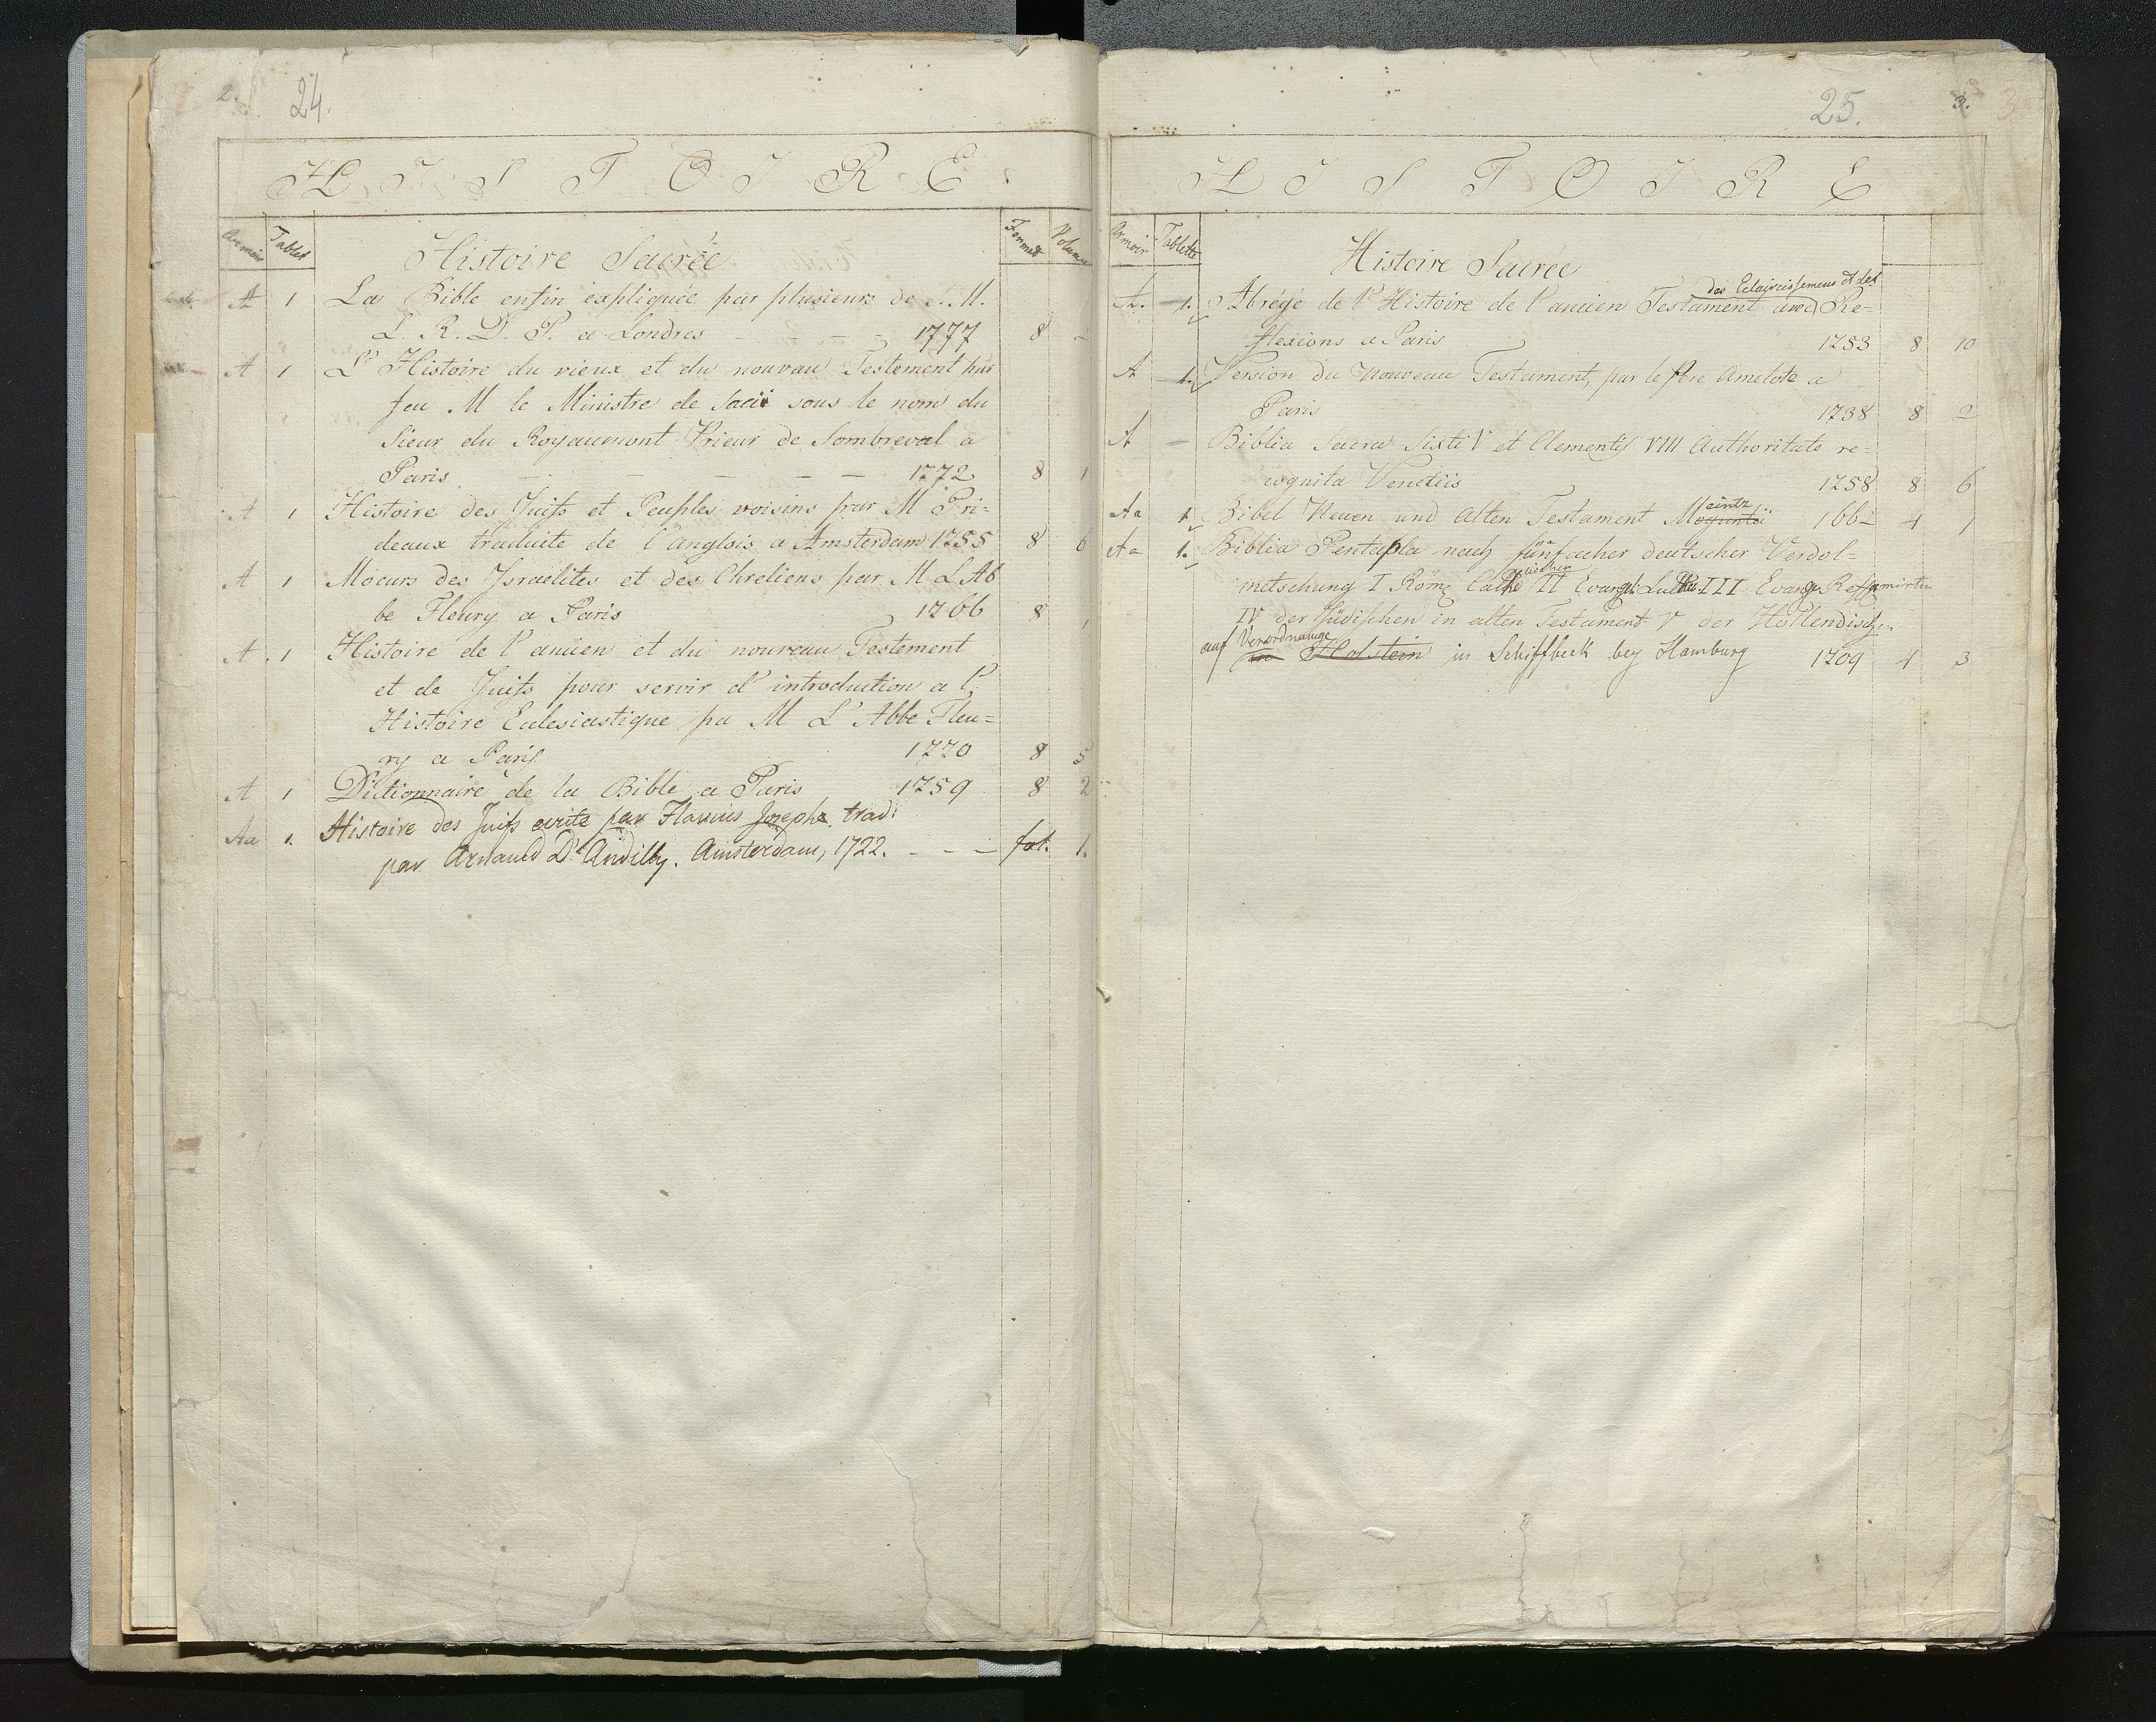 2. 24.
HISTOIRE.
Armoir Tablet Histoire Sacrée Format Volume
A 1 La Bible enfin expliquée par plusieurs de S. M.
L. R. D. P. a Londres - - - 1777 8 2
A 1 L' Histoire du vieux et du nouvau Testement par
feu M le Ministre de Saci sous le nom du
Sieur du Royaumont Prieur de Sombreval a
Paris - - - - 1772 8 1
A 1 Histoire des Juifs et Peuples voisins par M Pri-
deaux traduite de l'anglois a Amsterdam 1755 8 6
A 1 Moeurs des Israelites et des Chretiens par M L Ab
be Fleury a Paris 1766 8 1
A 1 Histoire de l'ancien et du nouveau Testement
et de Juifs pour servir d'introduction a l'
Histoire Eclesiastique pa M L'Abbe Fleu=
ry a Paris 1770 8 5
A 1 Dictionnaire de la Bible a Paris 1759 8 2
Aa 1. Histoire des Juifs ecrite par Flavius Josephe. trad:
par Arnauld D'Andilly. Amsterdam, 1722. - - - fol. 1.
25. 3.
HISTOIRE
Armoir Tablette Histoire Sacrée
des Eclaircissemens et des
A. 1. Abrégé de l'Histoire de l'ancien Testament avec Re-
flexions a Paris 1753 8 10
A 1. Version du Nouveau Testament, par le Pere Amelote a
Paris 1738 8 2
A - Biblia Sacra Sixti V et Clementis VIII Authoritate re-
cognita Venetiis 1758 8 6
eintz
Aa 1. Bibel Neuen und Alten Testament Moguntii 1662 4 1
Aa 1. Biblia Pentapla nach fünfacher deutscher Verdol=
metschung I Röm: Cathо II Evangel: Luthe III Evang: Reformirten
IV der Jüdischen in alten Testament V der Hollendisch.
auf Verordnunge
in Holstein in Schiffbeck bey Hamburg 1709 4 3